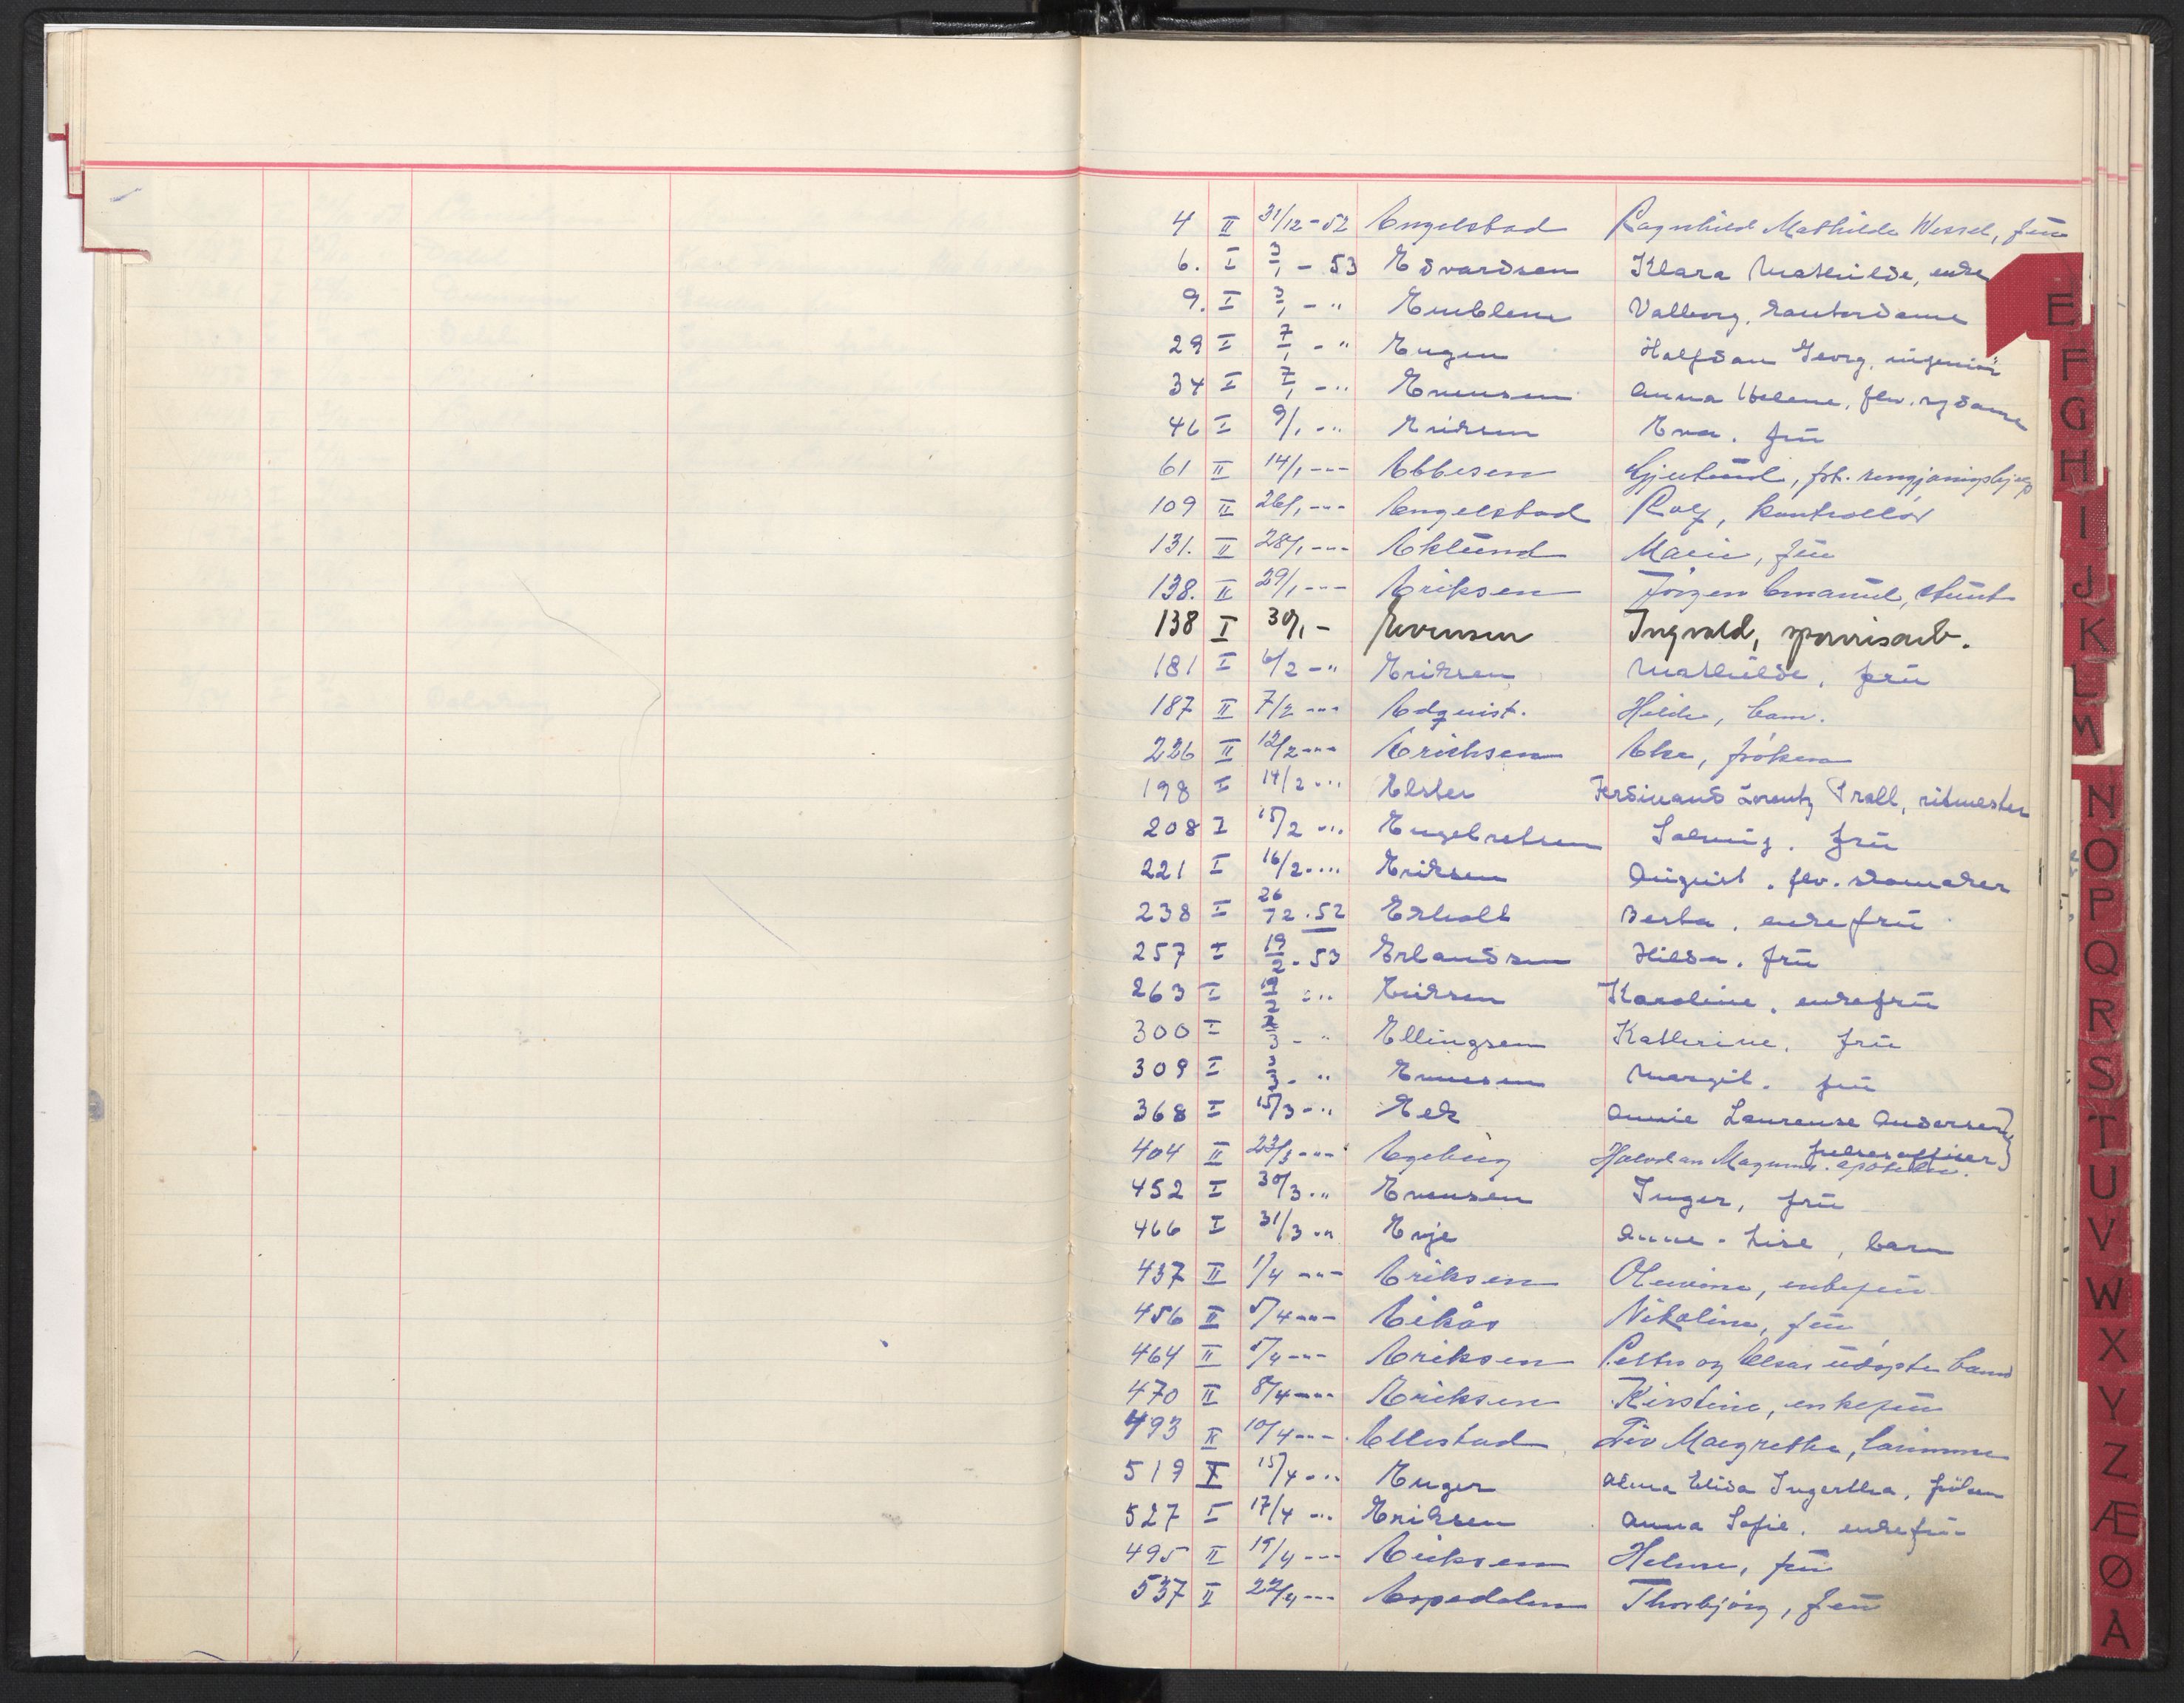 4 II 31/12-52 Engelstad Ragnhild Mathilde Wessel, frü
6. I 3/1 - 53 Edvardsen Klara Mathilde, enke
9. I 3/1 - " Emblem Valborg, kontordame
29 I 7/1 - " Engen Halfdan Georg, ingeniør
34 I 7/1 - " Evensen Anna Helene, flv. sydame
46 I 9/1 - " Eriksen Eva. frü
61 II 14/1 -"- Ebbesen Gjertrud, fht. rengjøringshjelp
109 II 26/1 -"- Engelstad Rolf, kontrollør
131. II 28/1 -"- Eklünd Marie, frü
138. II 29/1 -"- Eriksen Jörgen Emanuel, stüert
138 I 30/1 - Evensen Ingvald, sporvisarb.
181 I 6/2 - " Eriksen Mathilde, frü
187 II 7/2 -"- Edquist. Hilde, barn.
226 II 12/2 -"- Erichsen Else, fröken
198 I 14/2 -" Elster Ferdinand Lorentz Prall, ritmester
208 I 15/2 -" Engebretsen Solveig. frü
221 I 16/2 -" Eriksen August. flv. skomaker
238 I 26/12. 52 Ekholt Berta, enkefrü
257 I 19/2 - 53 Erlandsen Hilda. frü
263 I Eriksen Karoline, enkefrü
300 I - " Ellingsen Kathrine, frü
309 I - " Evensen Margit. frü
368 I 15/3 - " Eek Annie Laurense Andersen,
frelsesoffiser
404 II 23/3 -"- Egeberg Halvdan Magnus. apoteker.
452 I 30/3 - " Evensen Inger, frü
466 I 31/3 -" Evje Anne-Lise, barn
437 II 1/4 -"- Eriksen Oluvine, enkefrü
456 II 5/4 -"- Eikås Nikoline, frü
464 II 5/4 -"- Eriksen Petter og Elsas üdøpte barn
470 II 8/4 -"- Eriksen Kirstine, enkefrü
493 II 10/4 -"- Ellestad Liv Margrethe,
519 I 15/4 -" Enger Alma Elida Ingertha, fröken
527 I 17/4 -" Eriksen Anna Sofie, enkefrü
495 II 15/4 -"- Eriksen Helene, frü
537 II 22/4 -"- Espedalen Thorbjörg, frü
E
F
G
H
I
J
K
L
M
N
O
P
Q
R
S
T
U
V
W
X
Y
Z
Æ
Ø
Å